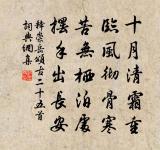 十月清霜重
臨風彻骨寒
苦無栖泊處
擺手出長安
釋崇岳頌古二十五首
詞典網集